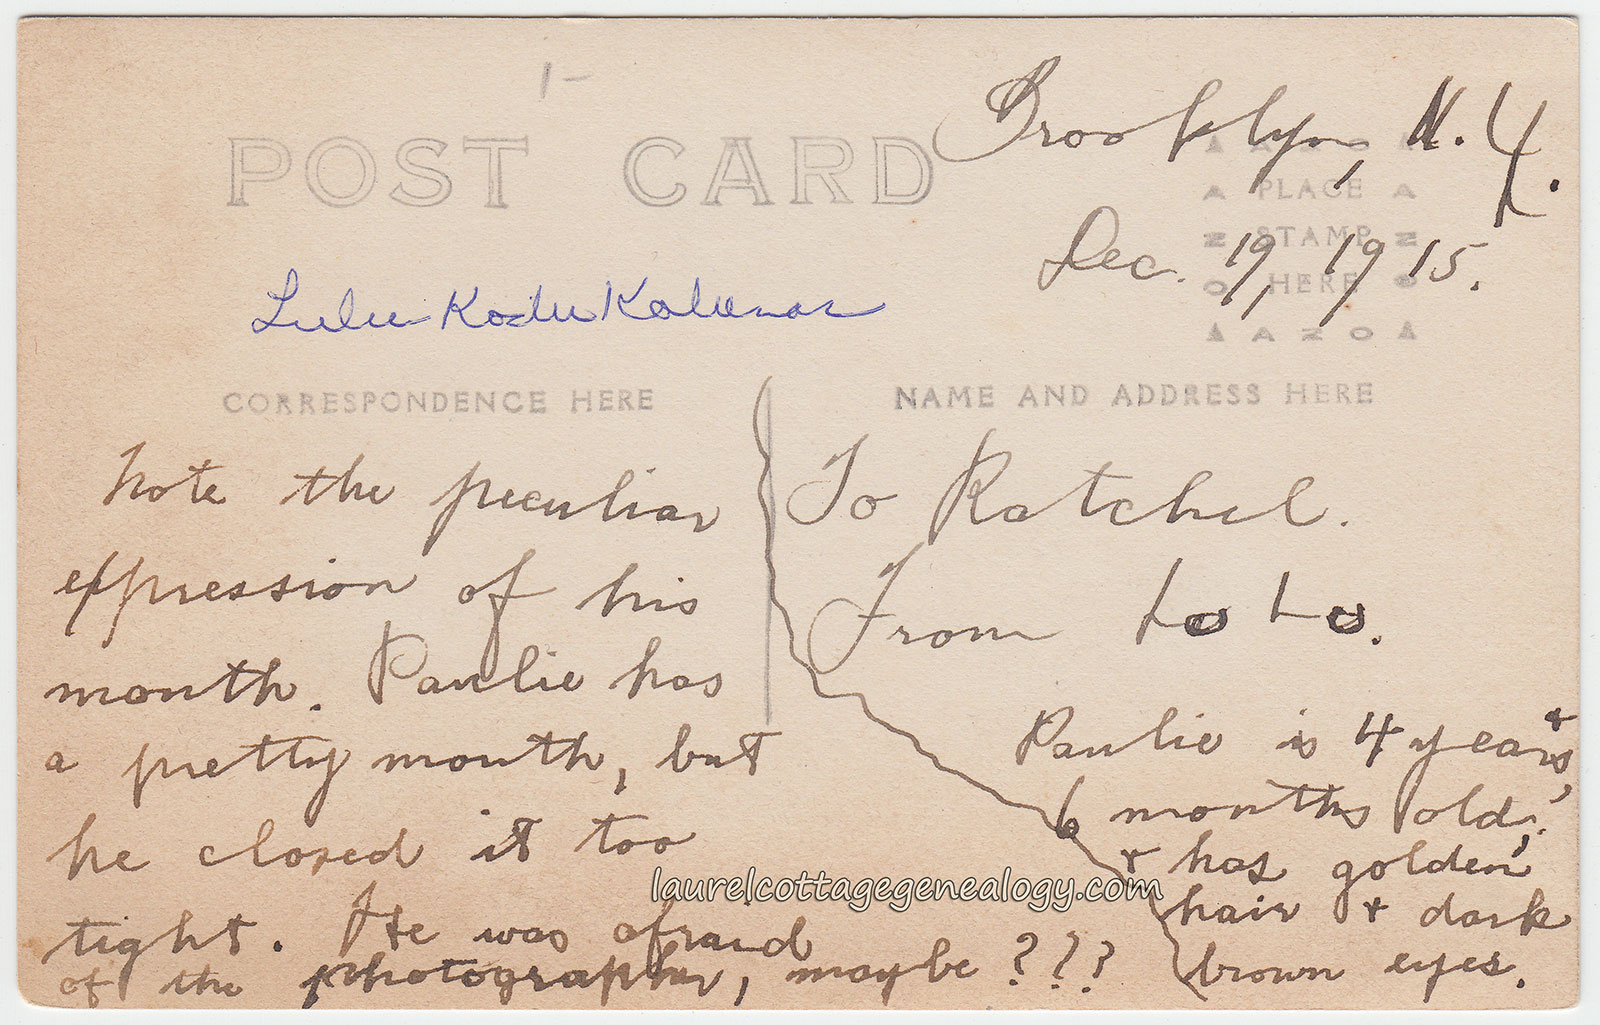 1-
POST CARD
Brooklyn, N.Y.
Dec. 19, 1915.
A Z O
PLACE
STAMP
HERE
AZO
Lulu
CORRESPONDENCE HERE
NAME AND ADDRESS HERE
Note the peculiar
expression of his
mouth. Paulie has
a pretty mouth, but
he closed it too
tight. He was afraid
of the photographer, maybe ???
To Ratchel.
From LoLo.
Paulie is 4 years, +
6 months old,
+ has golden
hair + dark
brown eyes.
laurelcottagegenealogy.com